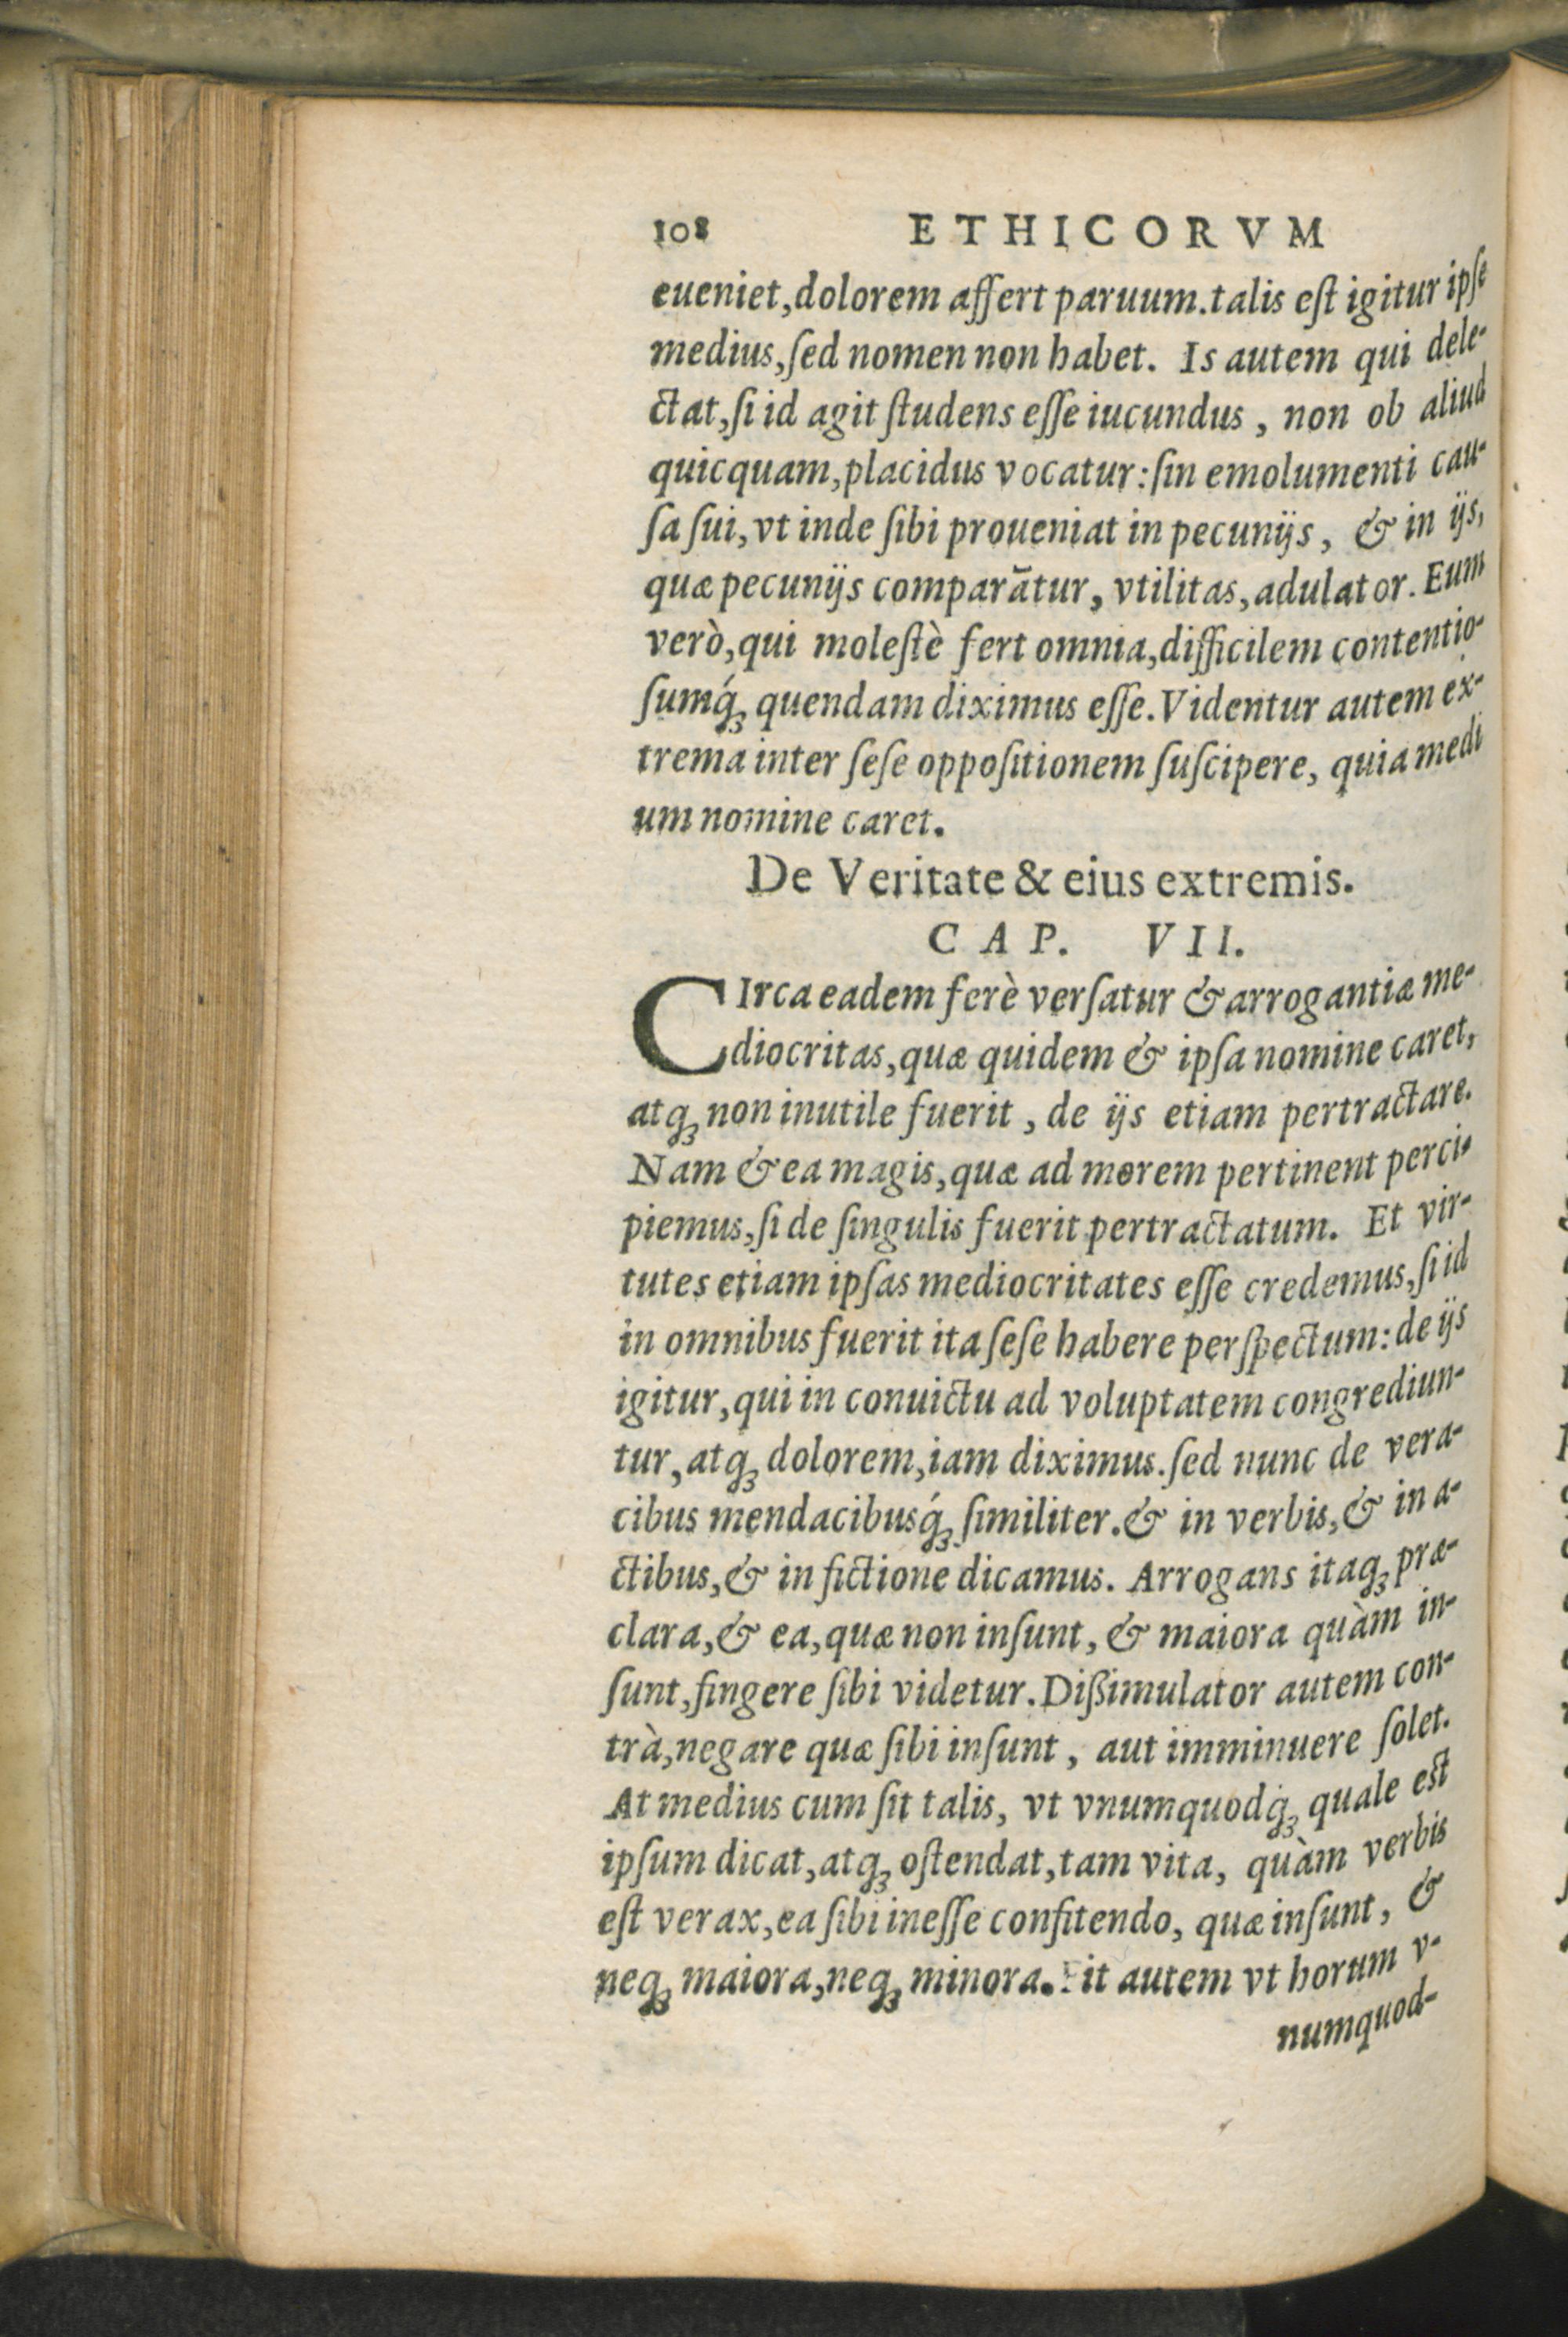 108 ETHICORVM
eueniet,dolorem affert paruum.talis eſt igitur ipſe
medius,ſed nomen non habet. Is autem qui dele-
ctat,ſi id agit ſtudens eſſe iucundus, non ob aliud
quicquam,placidus vocatur:ſin emolumenti cau-
ſa ſui,vt inde ſibi proueniat in pecunijs, & in ijs,
quæ pecunijs comparãtur, vtilitas,adulator. Eum
verò,qui moleſtè fert omnia,difficilem contentio-
ſumq́ꝫ quendam diximus eſſe.Videntur autem ex-
trema inter ſeſe oppoſitionem ſuſcipere, quia medi
um nomine caret.
De Veritate & eius extremis.
CAP. VII.
CIrca eadem ferè verſatur & arrogantiæ me-
diocritas,quæ quidem & ipſa nomine caret,
atqꝫ non inutile fuerit, de ijs etiam pertractare.
Nam & ea magis,quæ ad morem pertinent perci-
piemus,ſi de ſingulis fuerit pertractatum. Et vir-
tutes etiam ipſas mediocritates eſſe credemus,ſi id
in omnibus fuerit ita ſeſe habere perſpectum:de ijs
igitur,qui in conuictu ad voluptatem congrediun-
tur,atqꝫ dolorem,iam diximus.ſed nunc de vera-
cibus mendacibusq́ꝫ ſimiliter.& in verbis,& in a-
ctibus,& in fictione dicamus. Arrogans itaqꝫ præ-
clara,& ea,quæ non inſunt, & maiora quàm in-
ſunt,fingere ſibi videtur.Dißimulator autem con-
trà,negare quæ ſibi inſunt, aut imminuere ſolet.
At medius cum ſit talis, vt vnumquodq́ꝫ quale eſt
ipſum dicat,atqꝫ oſtendat,tam vita, quàm verbis
eſt verax,ea ſibi ineſſe confitendo, quæ inſunt, &
neqꝫ maiora,neqꝫ minora.Fit autem vt horum v-
numquod-